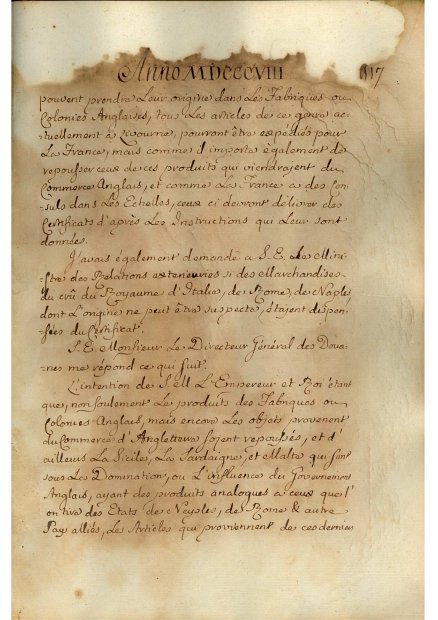 Anno MDCCCVIII 817
peuvent prendre Leur origine dans Les Fabriques ou
Colonies Anglaises, tous Les articles de ce genre ac-
tuellement à Livourne, pourront être expediés pour
La France, mais comme il importe également de
repousser ceux de ces produits qui viendrojent du
Commerce Anglais, et comme La France a des Con-
suls dans Les Echelles, ceux ci devront délivrer des
Certificats d'après Les Instructions qui Leur sont
données.
J'avais également demandé a S. E. Le Mini-
stre des Relations exterieures si des Marchandises
du crû du Royaume d'Italie, de Rome, de Naples
dont L'origine ne peut être suspecte, étajent dispen-
sées du Certificat.
S. E. Monsieur Le Directeur Général des Doua-
nes me répond ce qui suit.
L'intention de S. M. L'Empereur et Roi étant
que, non seulement Le produits des Fabriques ou
Colonies Anglais, mais encore Les objets provenent
du Commerce d'Angleterre sojent repoussés, et d'
ailleurs La Sicile, La Sardaigne, et Malte qui sont
sous La Domination, ou L'influence du Governement
Anglais, ayant des produits analogues a ceux que l'
on tire des Etats de Neyples, de Rome & autre
Pay alliés, Les Articles qui proviennent de ces derniers